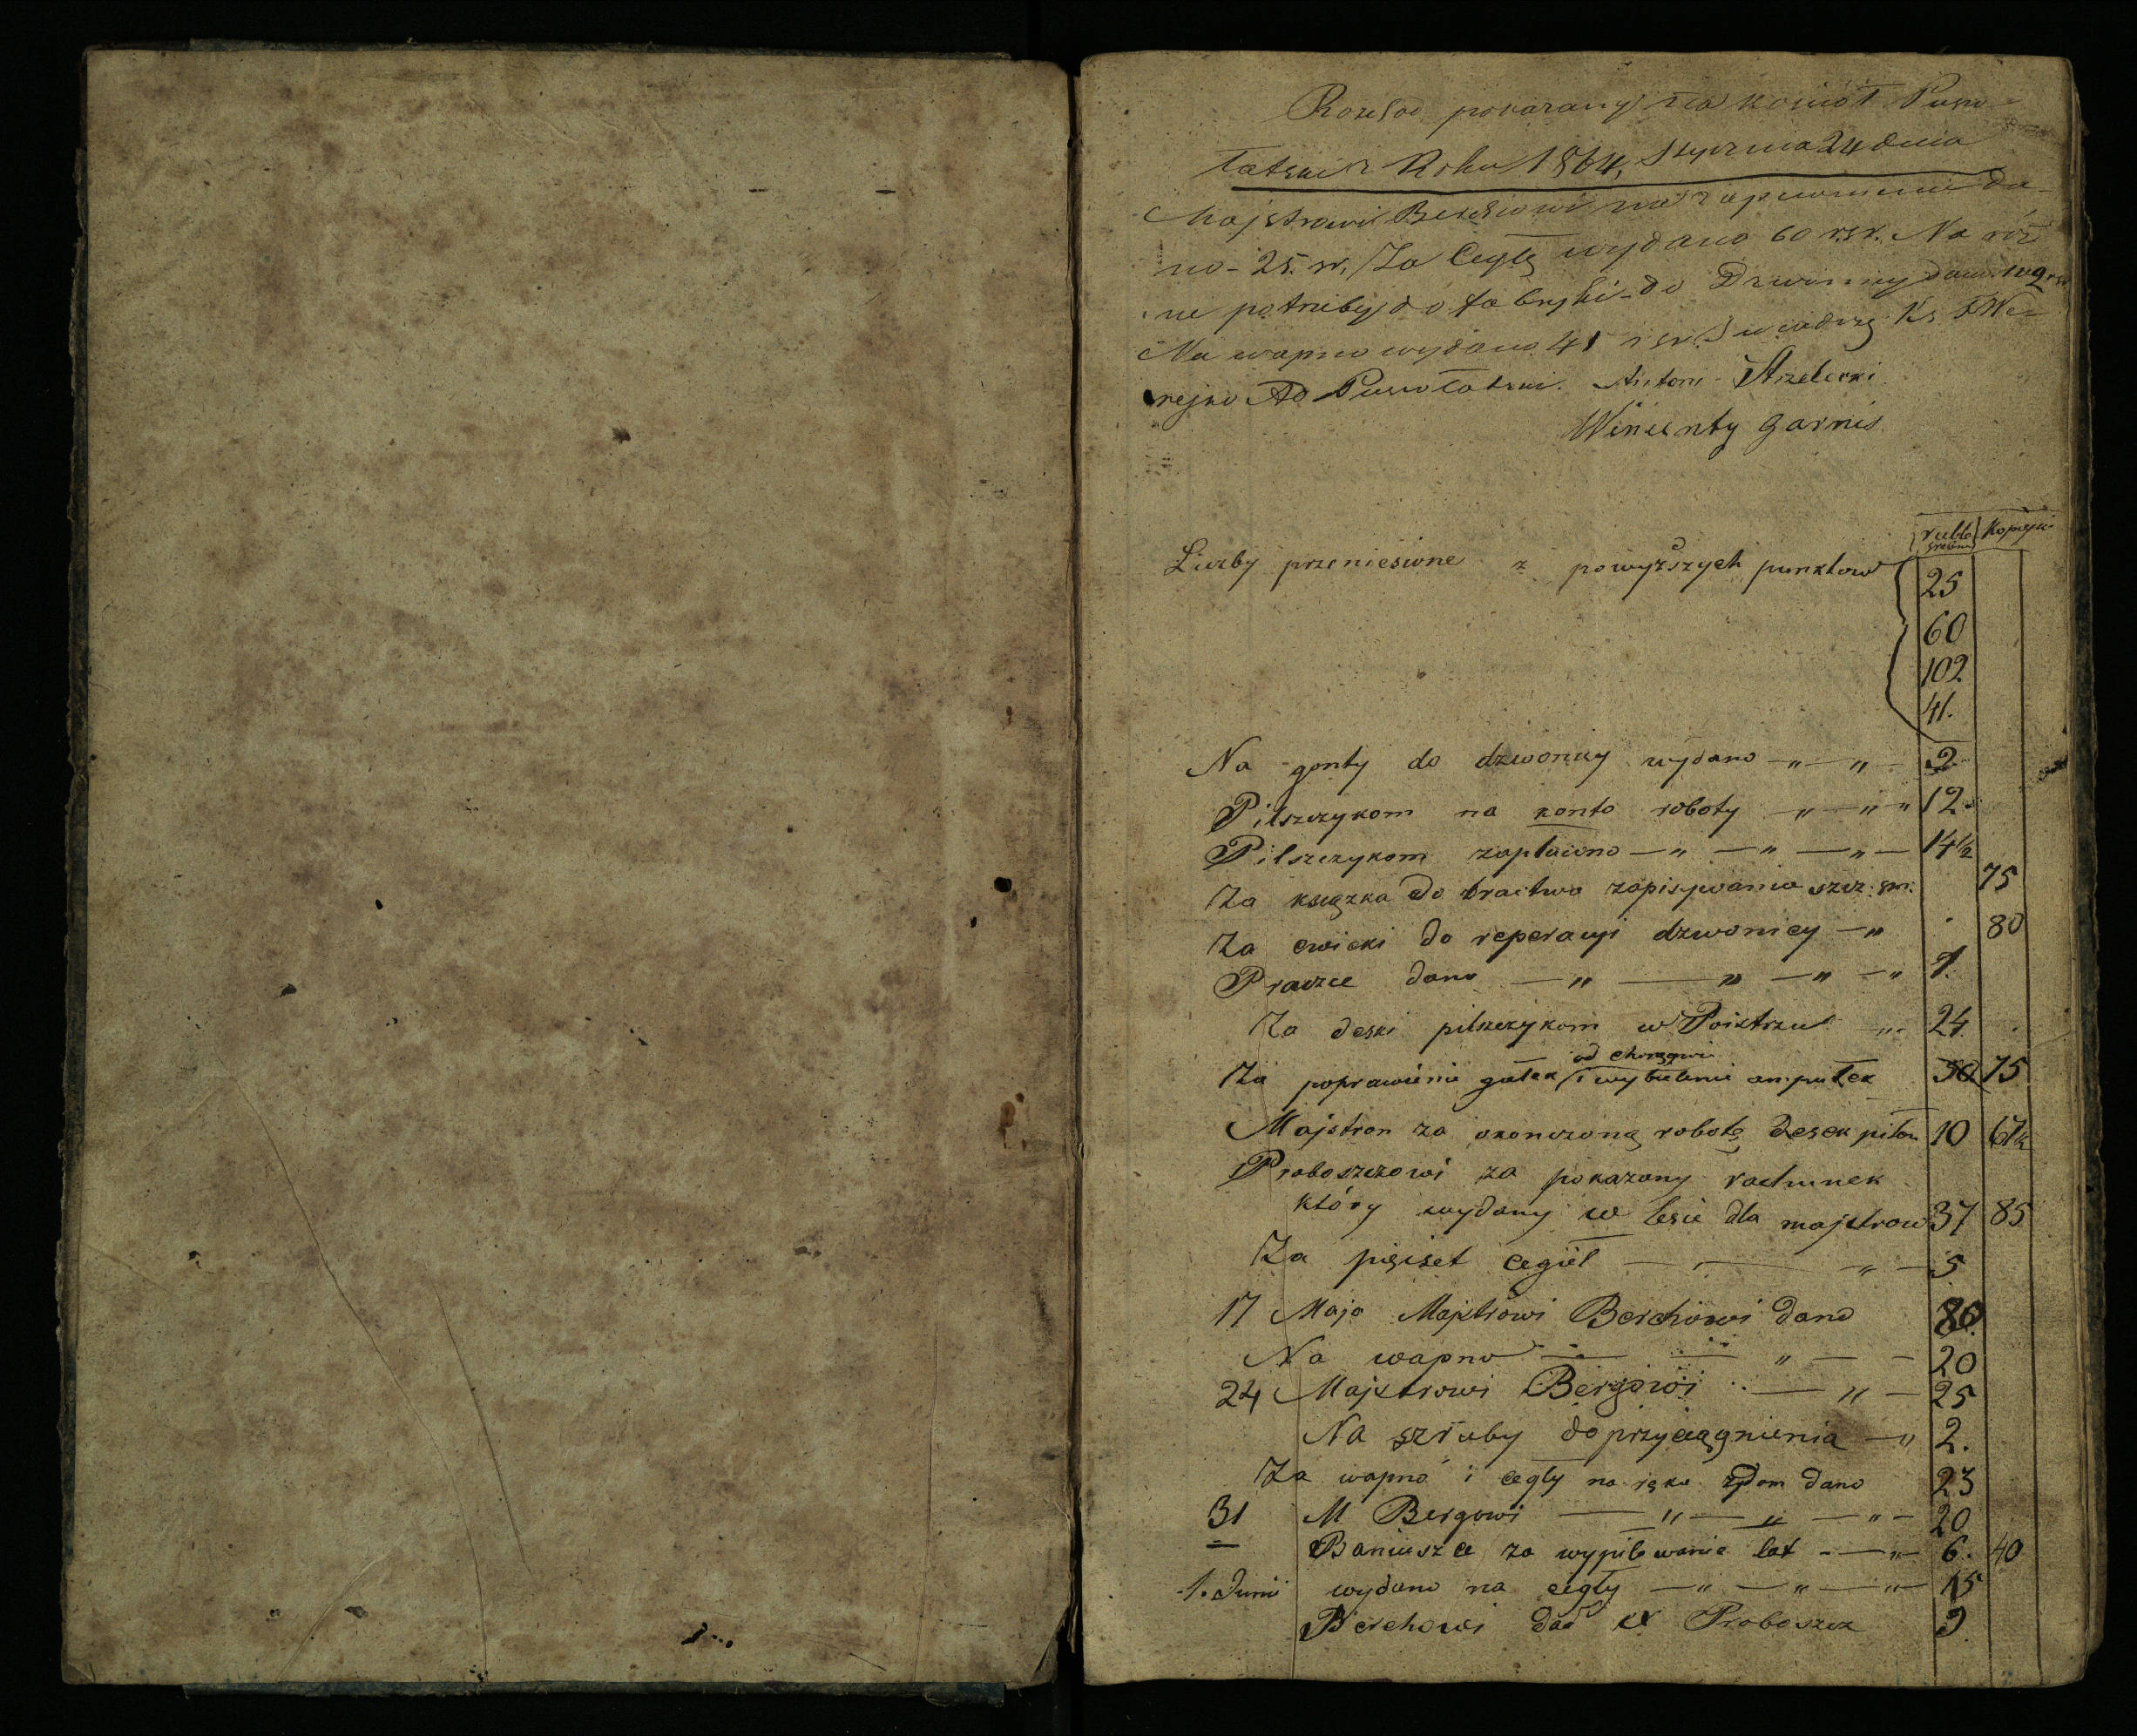 Rozchod pokazany na kościoł Puszo
łatski z Roku 1864, Stycznia 24 dnia
Majstrowi Berchowi na zapewnienie da-
no - 25. sr. Za Cegłę wydano 60 r.sr. Na róż
ne potrzeby do fabryki - do Dzwinny dano 102 r.sr
Na wapno wydano 41 r sr. Swiadczę Ks F We-
rejko Ad Puszołatski. Antoni - Strzelecki
Wincenty Garnis
rubli srebrem Kopiejki
Liczby przeniesione z powyższych punktow 25
60
102
41.
Na gonty do dzwonicy wydano — „ — „ — 2
Pilszczykom na konto roboty — „ — „ „ 12
Pilszczykom zapłacono — „ — „ — „ — 14½
Za ksiązka do bractwa zapisywania szcz. sm. 75
Za cwieki do reperacyi dzwonicy — „ 80
Praczce dano — „ — „ — „ — „ 1.
Za deski pilszczykom w Poistrzu „ 24
od choragwi
Za poprawienie gałek i wybielenie ampułek 75
Majstron za skonczoną robotę desek piłow 10 67½
Proboszczowi za pokazany rachunek
który wydany w lesie dla majstrow 37 85
Za pięiset cegieł — „ — 5
17 Maja Majstrowi Berchowi dano 80
Na wapno — — „ — — 20
24 Majstrowi Bergowi — „ — 25
Na szruby do przyciągnienia — „ 2.
Za wapno i cegły na ręku dano 23
31 M Bergowi — „ — „ — „ — 20
Baniuszce za wypilewanie łat - — „ — 6. 40
1. Junii wydano na cegły — „ — „ — „ — 15
Berchowi dał X Proboszcz 9